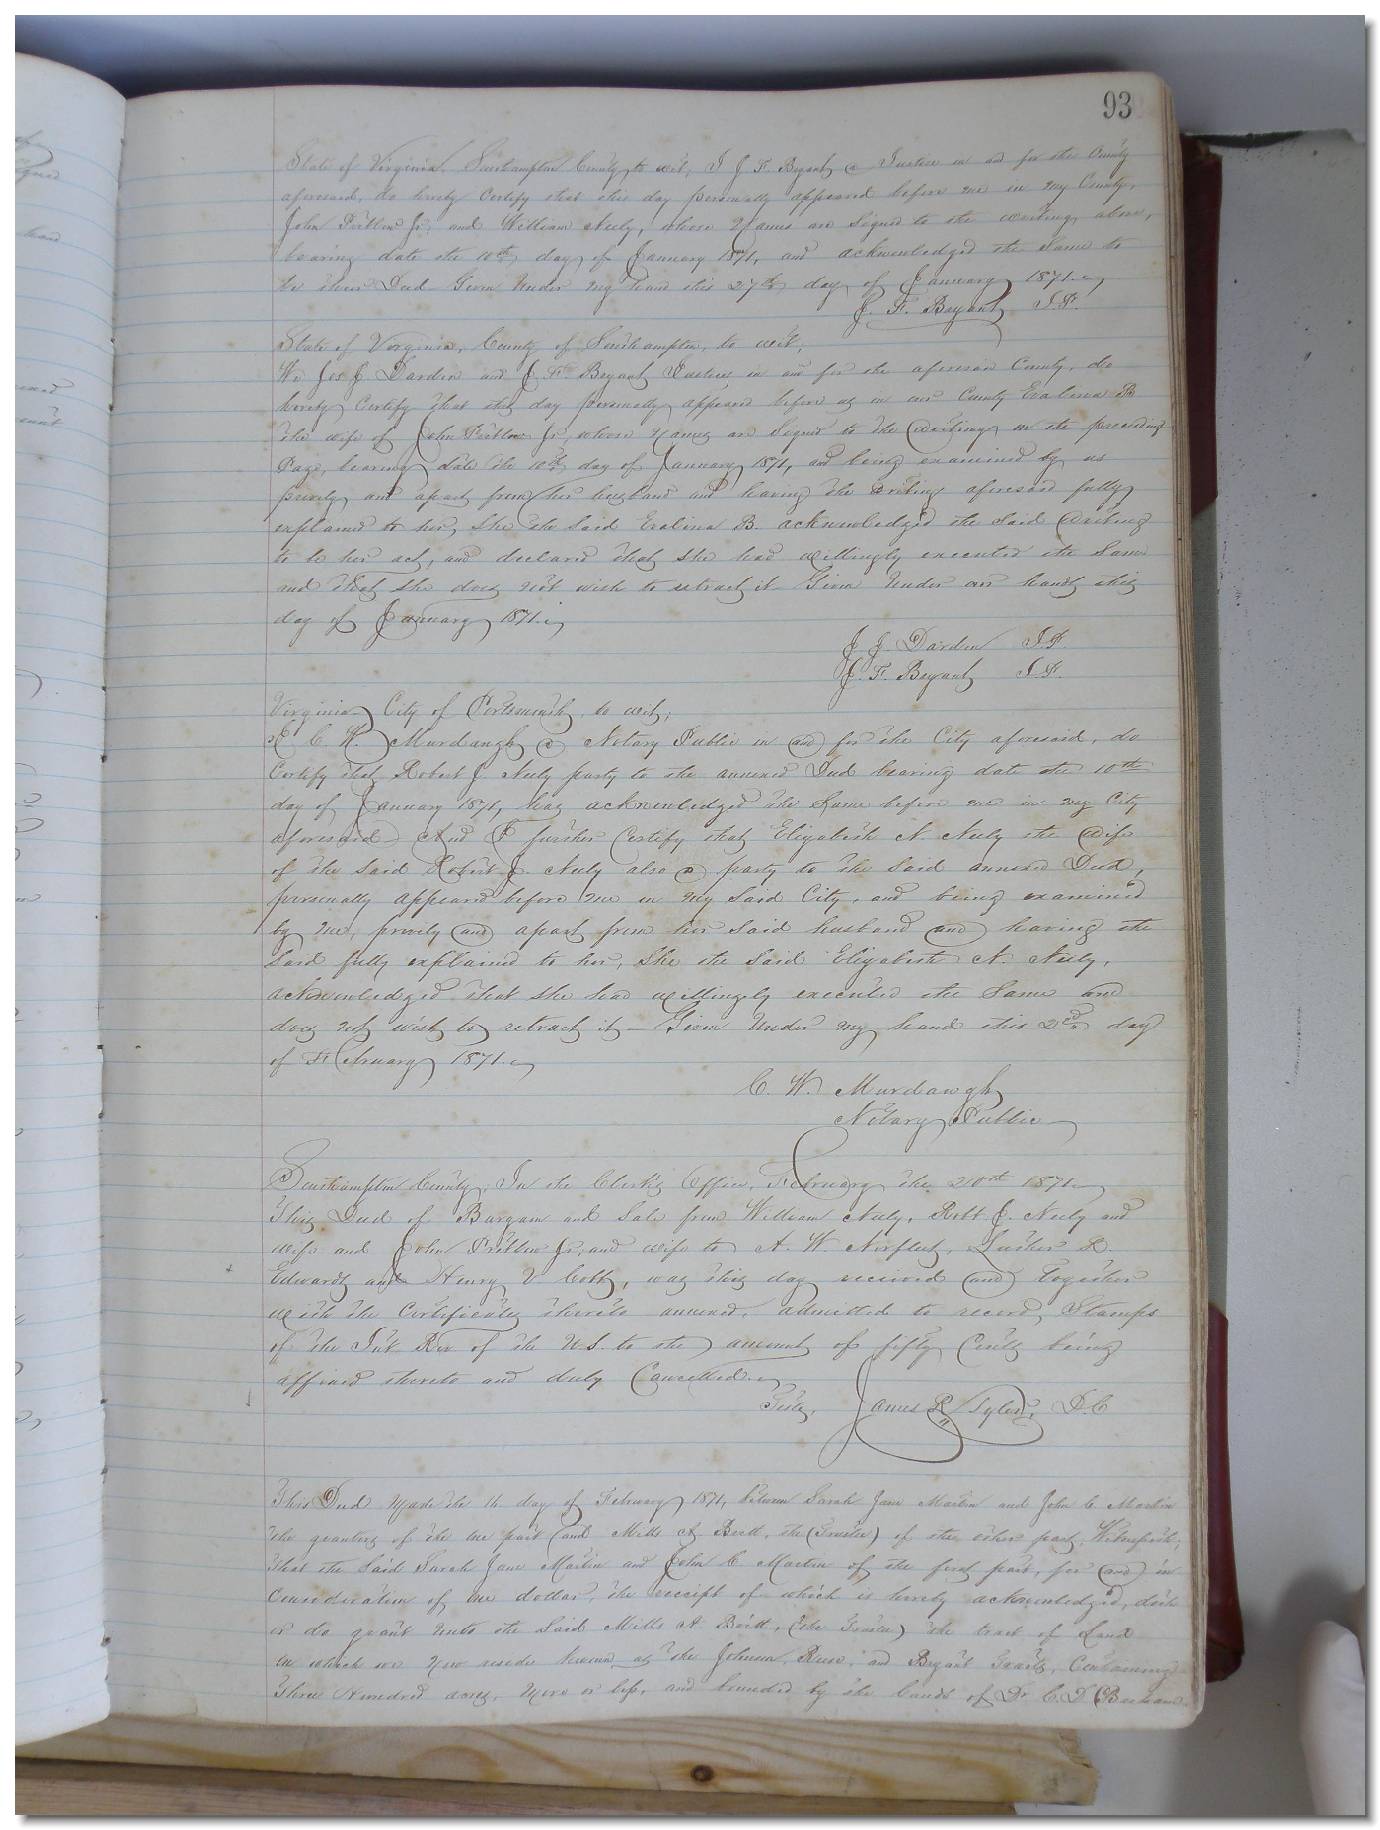 93
State of Virginia, Southampton County, to wit, I J. F. Bryant a Justice in and for the County
aforesaid, do hereby Certify that this day personally appeared before me in my County,
John Pretlow Jr, and William Neely, whose Names are Signed to the writing above,
bearing date the 10th day of January 1871, and acknowledged the Same to
be their Deed Given Under my hand this 27th day of January 1871.
J. F. Bryant J.P.
State of Virginia, County of Southampton, to wit,
We Jos J Darden and J. F. Bryant Justices in and for the aforesaid County, do
hereby Certify that this day personally appeared before us in our County Evalina B
the wife of John Pretlow Jr, whose Names are Signed to the writing on the preceeding
Page, bearing date the 10th day of January 1871, and being examined by us
privily and apart from her husband and having the writing aforesaid fully
explained to her, She the Said Evalina B. acknowledged the Said writing
to be her act, and declared that She had willingly executed the Same
and that She does not wish to retract it Given Under our hands this
day of January 1871.
J. J. Darden J.P.
J. F. Bryant J.P.
Virginia City of Portsmouth, to wit;
I C. W. Murdaugh a Notary Public in and for the City aforesaid, do
Certify that Robert J. Neely party to the annexed Deed bearing date the 10th
day of January 1871, has acknowledged the Same before me in my City
aforesaid And I further Certify that Elizabeth N. Neely the wife
of the Said Robert J. Neely also a party to the Said annexed Deed,
personally appeared before me in my Said City, and being examined
by me, privily and apart from her Said husband and having the
Said fully explained to her, She the Said Elizabeth N. Neely,
acknowledged that She had willingly executed the Same and
does not wish to retract it - Given Under my hand this 2nd day
of February 1871.
C. W. Murdaugh
Notary Public
Southampton County, In the Clerk's Office, February the 20st 1871
This Deed of Bargain and Sale from William Neely, Robt J. Neely and
wife and John Pretlow Jr, and wife to A. W. Norfleet, Luther R.
Edwards and Henry V Cobb, was this day received and together
with the Certificates thereto annexed, admitted to record, Stamps
of the Int Rev of the U.S. to the amount of fifty Cents being
affixed thereto and duly Cancelled.
Teste, James R Tyler, D.C
This Deed Made the 11 day of February 1871, between Sarah Jane Martin and John C Martin
the grantors of the one part and Mills A. Britt, the (Trustee) of the other part, Witnesseth;
that the Said Sarah Jane Martin and John C Martin of the first part, for and in
Consideration of one dollar, the receipt of which is hereby acknowledged, doth
or do grant unto the Said Mills A. Britt, (the Trustee) the tract of Land
on which we now reside known as the Johnson, and Bryant Tracts, Containing
Three Hundred acres, more or less, and bounded by the lands of Dr C. D